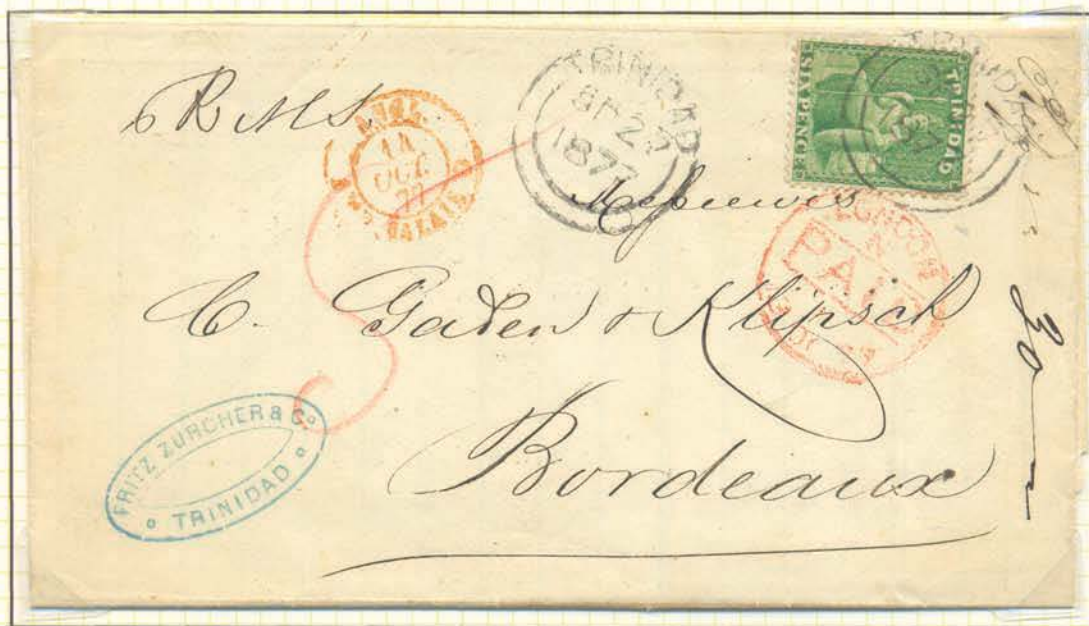 p R M S.
ANGL.
14
OCT.
CALAIS
TRINIDAD
SP 2
1877
TRINIDAD
SIX PENCE
TRINIDAD
Messieurs
LONDON
PAID
C. Gaden & Klipsch
Bordeaux
FRITZ ZURCHER & Co.
TRINIDAD